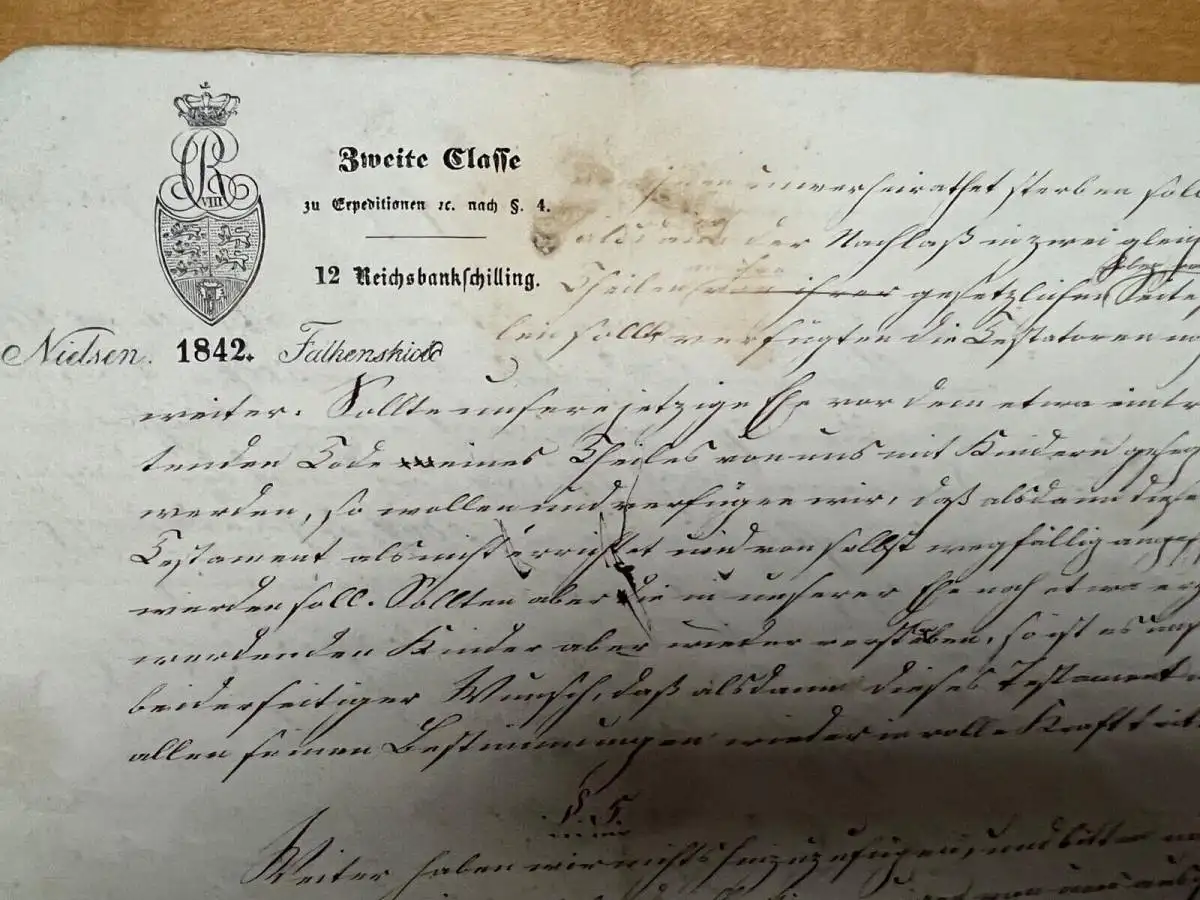 VIII
Zweite Classe
zu Expeditionen ꝛc. nach §. 4.
12 Reichsbankschilling.
Nielsen. 1842. Falkenskiold
unverheirathet sterben soll
der Nachlaß in zwei gleich
Theilen von ihrer gesetzlichen Seite
len sollte verfügten die Testatoren
weiter. Sollte unsere jetzige Ehe vor dem etwa eintre
tenden Tode eines Theiles von uns mit Kindern geseg
werden, so wollen und verfügen wir, daß alsdann diese
Testament als nicht errichtet und von selbst wegfällig angese
werden soll. Sollten aber die in unserer Ehe noch etwa erz
werdenden Kinder aber wieder versterben, so ist es uns
beiderseitiger Wunsch, daß alsdann dieses Testament
allen seinen Bestimmungen wieder in volle Kraft trit
§. 5.
Weiter haben wir nichts hinzuzufügen, und bitten